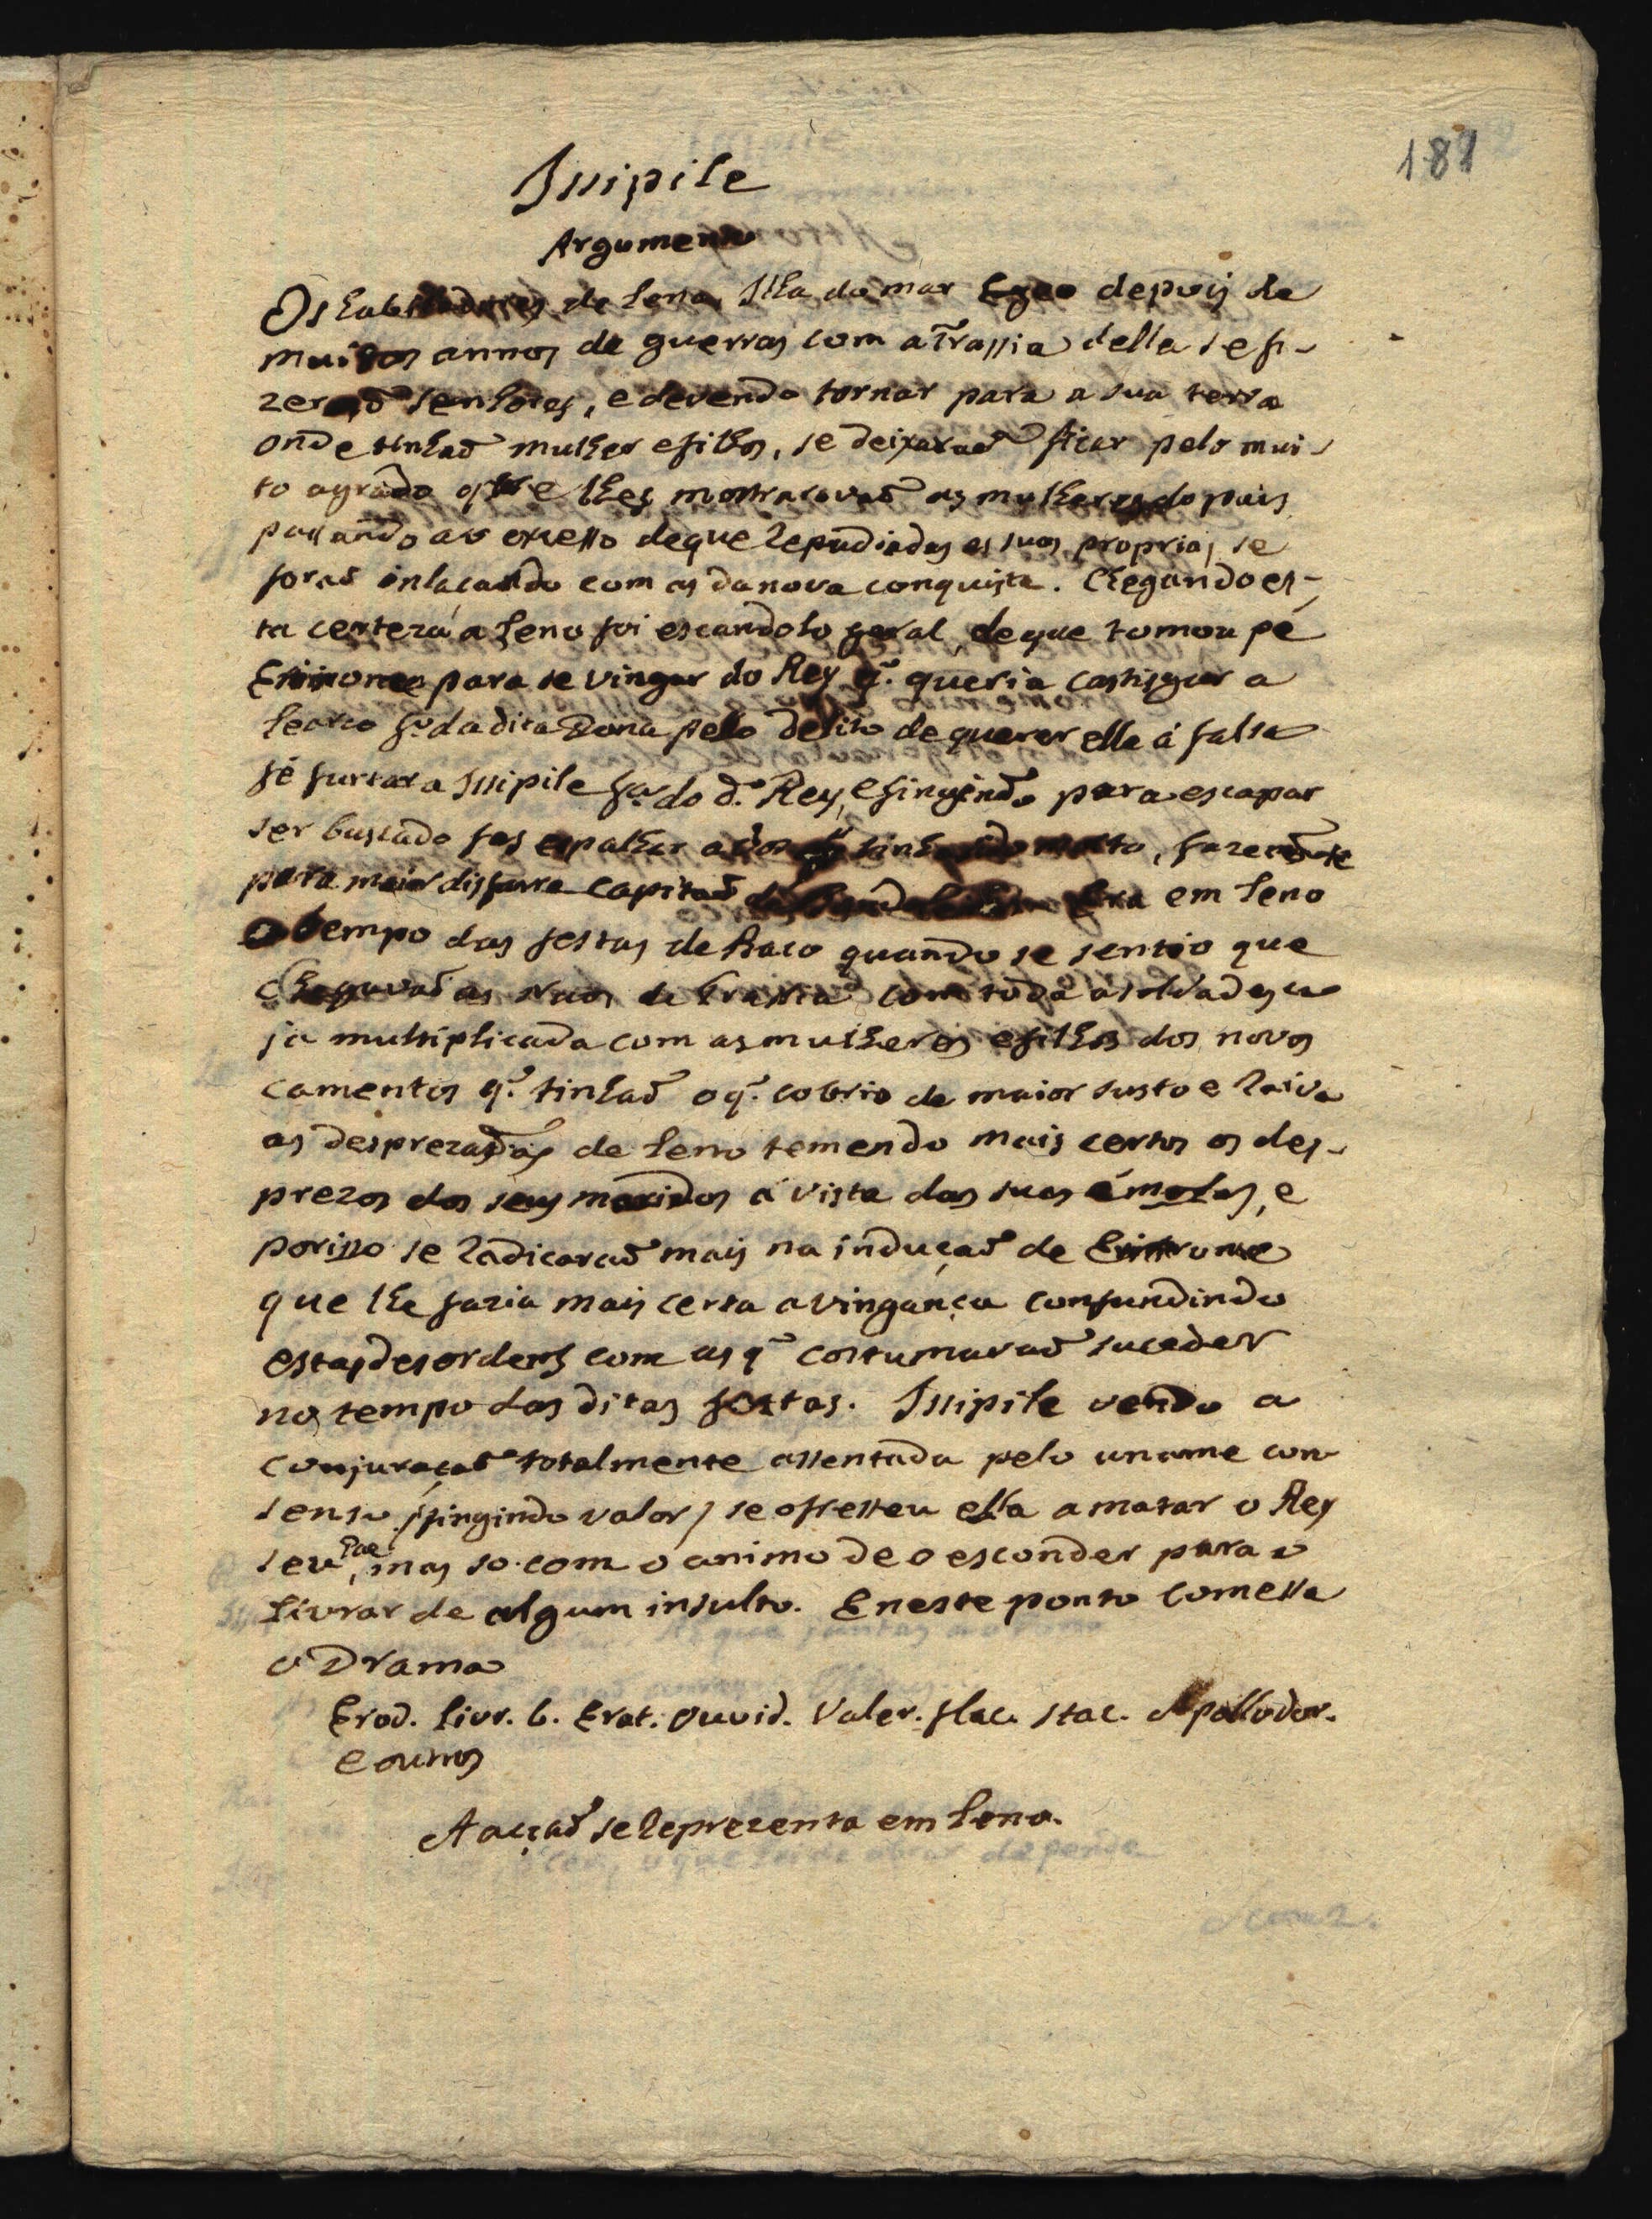 187
Issipile
Argumento
Os habitadores de Leno, Ilha do mar Egeo depois de
muitos annos de guerras com a Trassia della se fi-
zeraõ senhores, e devendo tornar para a sua terra
onde tinhaõ mulher e filhos, se deixaraõ ficar pelo mui-
to agrado que lhes mostravaõ as mulheres do pais
passando ao exesso de que repudiadas as suas proprias se
foraõ inlaçando com as da nova conquista. Chegando es-
ta certeza a Leno foi escandolo geral, de que tomou pé
para se vingar do Rey q. queria castigar a
Learco fo. da dita Dona pelo delito de querer elle á falsa
fé furtar a Issipile fa. do d. Rey, e fingindo para escapar
ser buscado fes espalhar a tinha morto, fazendose
para maior disfarce Capitaõ Era em Leno
o tempo das festas de Baco quando se sentio que
chegavaõ as Naos da Trassia com toda a soldadesca
ja multiplicada com as mulheres e filhos dos novos
camentos q. tinhaõ o q. cobrio de maior susto e raiva
as desprezadas de Leno temendo mais certos os des-
prezos dos seus maridos á vista das suas émolas, e
porisso se radicaraõ mais na induçaõ de
que lhe fazia mais certa a vingança confundindo
estas desordens com as q. costumavaõ suceder
no tempo das ditas festas. Issipile vendo a
conjuraçaõ totalmente assentada pelo uname con-
senso /fingindo valor/ se ofresseu ella a matar o Rey
seu Pae, mas so com o animo de o esconder para o
livrar de algum insulto. E neste ponto comessa
o Drama
Erod. livr. 6. Erat. Ouvid. Valer. flac. Stac. Apollodor.
e outros
A acçaõ se reprezenta em Leno.